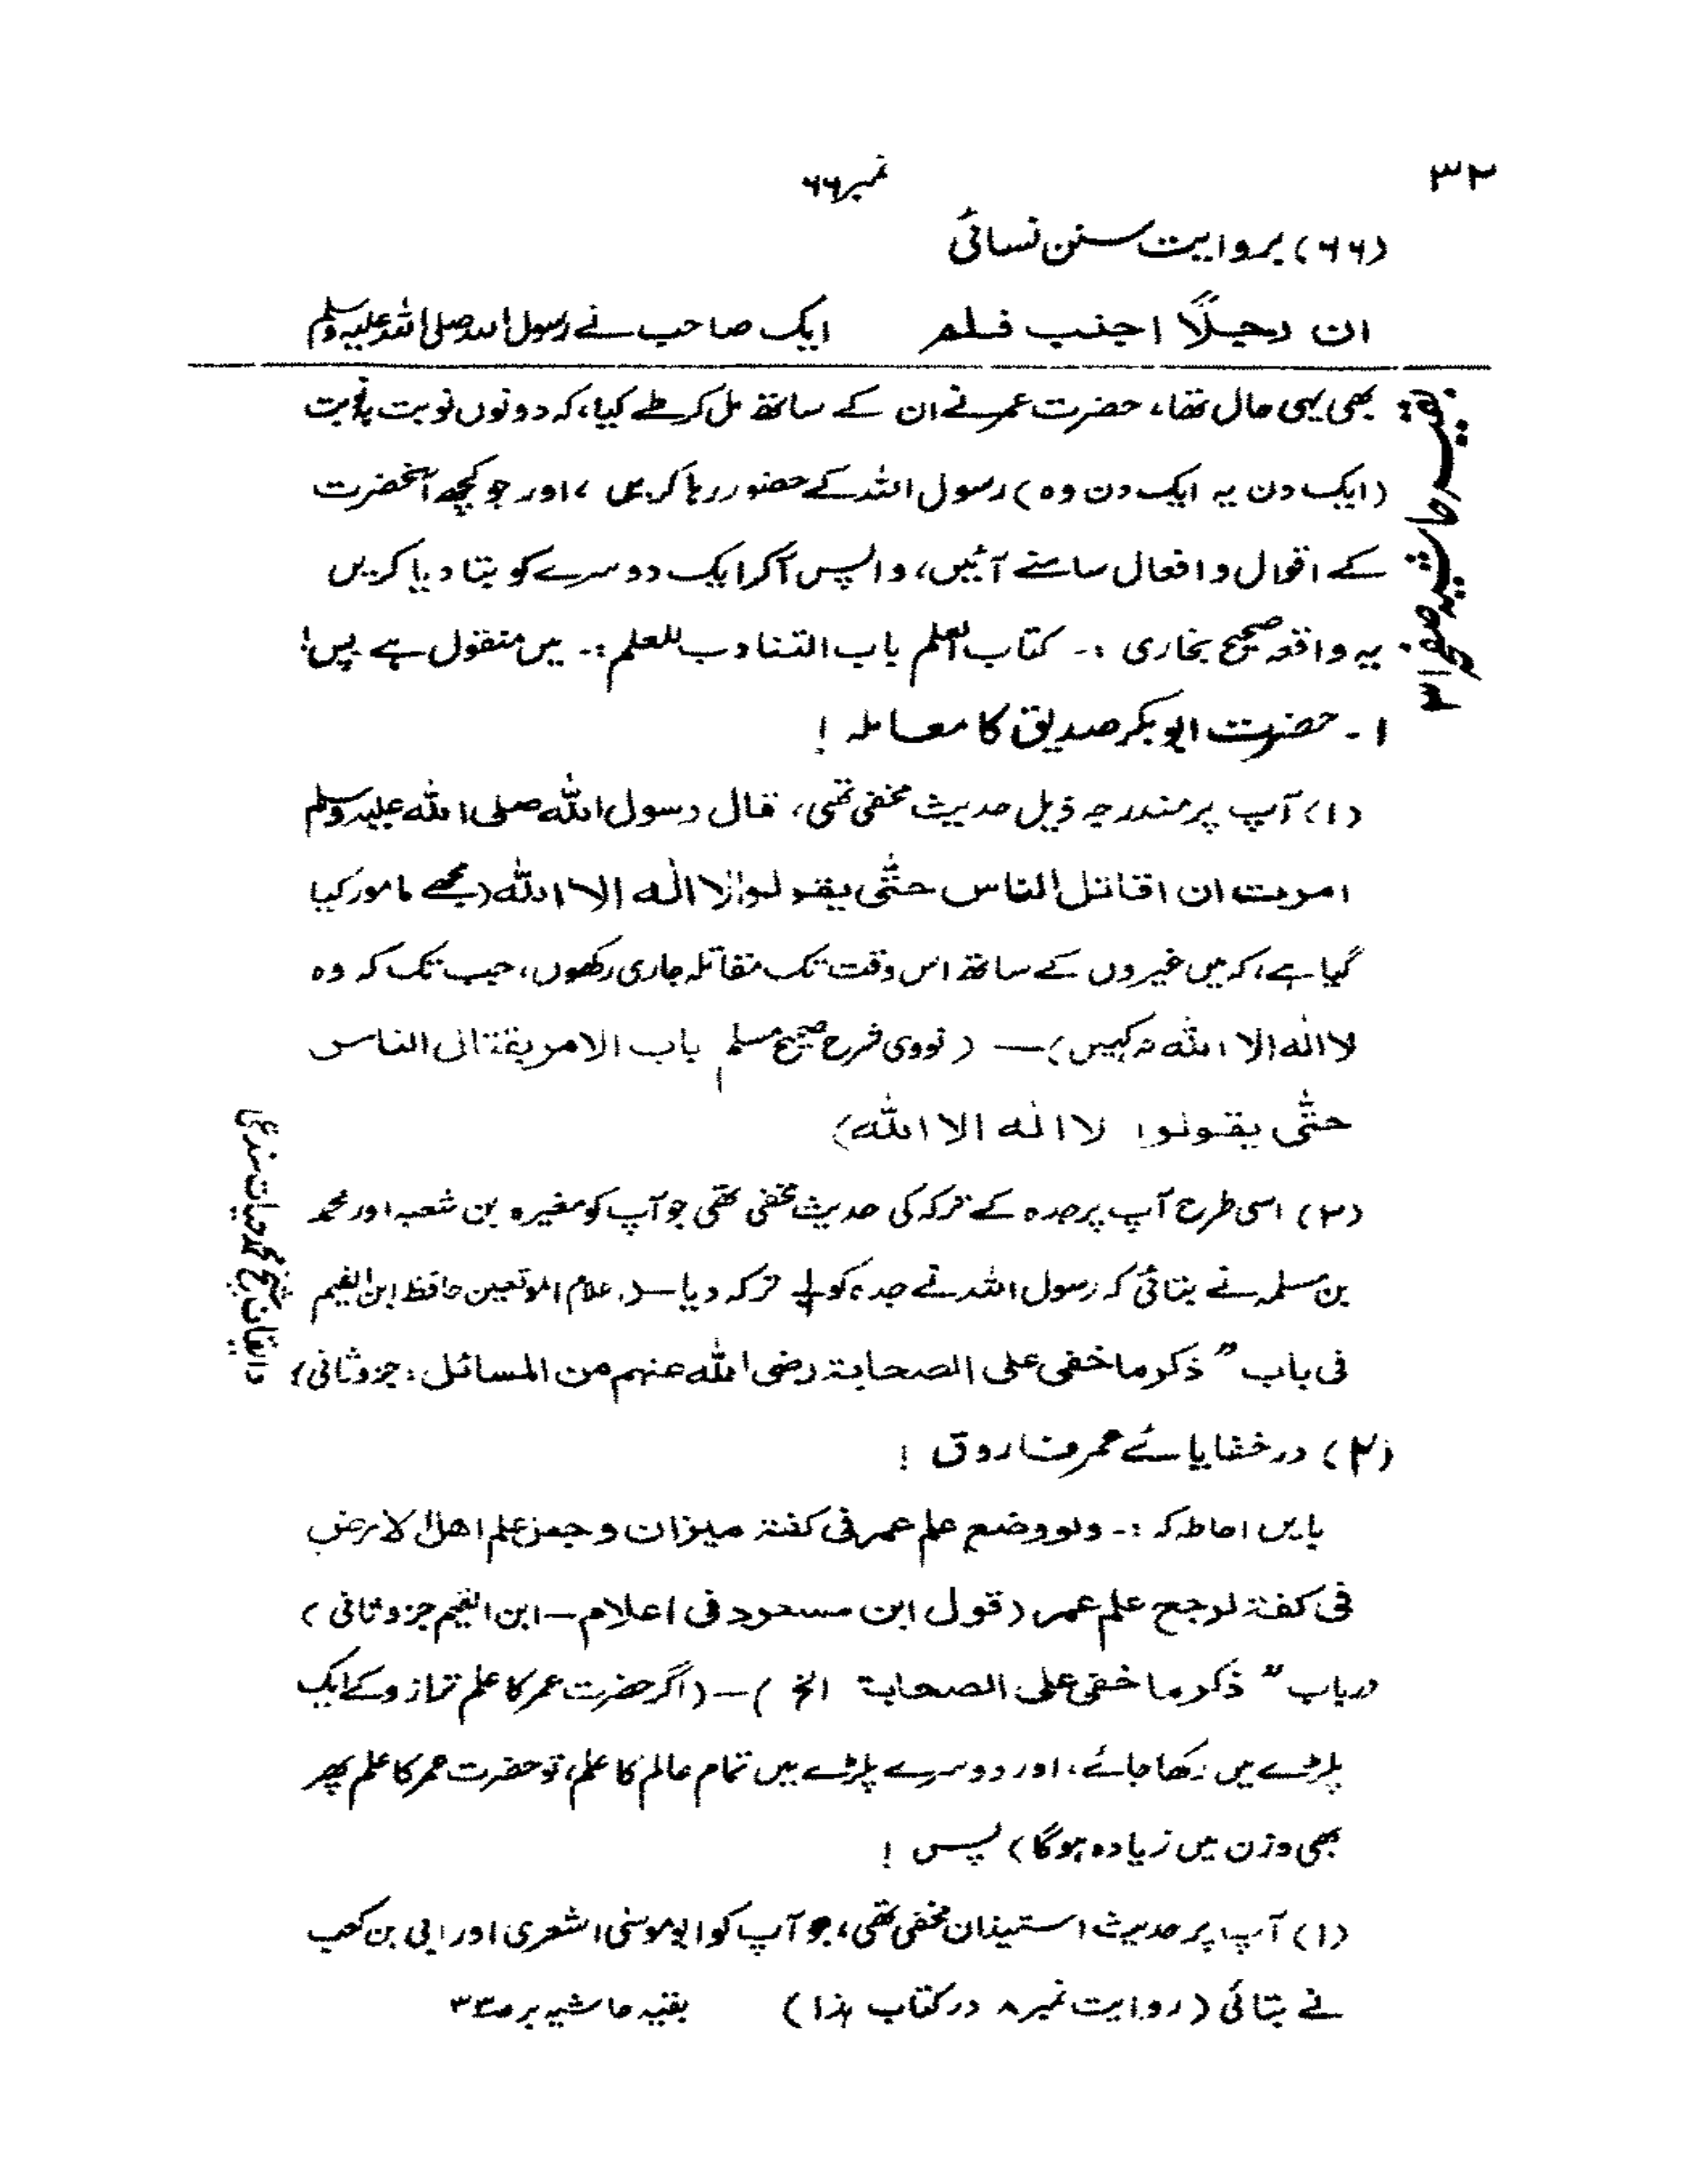 ۳۲
نمبر ۶۶
(۶۶) بروایت سنن نسائی
ان رجلاً اجنب فلم
ایک صاحب نے رسول اللہ صلی اللہ علیہ وسلم
بقیہ حاشیہ صفحہ ۳۱
بھی یہی حال تھا، حضرت عمر نے ان کے ساتھ مل کر طے کیا، کہ دونوں نوبت بنوبت
(ایک دن یہ ایک دن وہ) رسول اللہ کے حضور رہا کریں، اور جو کچھ آنحضرت
کے اقوال و افعال سامنے آئیں، واپس آکر ایک دوسرے کو بتا دیا کریں
یہ واقعہ صحیح بخاری :۔ کتاب العلم باب التناوب للعلم :۔ میں منقول ہے پس!
۱۔ حضرت ابوبکر صدیق کا معاملہ!
(۱) آپ پر مندرجہ ذیل حدیث مخفی تھی، قال رسول اللہ صلی اللہ علیہ وسلم
امرت ان اقاتل الناس حتّٰی یقولوا لا الٰہ الا اللہ (مجھے مامور کیا
گیا ہے، کہ میں غیروں کے ساتھ اس وقت تک مقاتلہ جاری رکھوں، جب تک کہ وہ
لا الٰہ الا اللہ نہ کہیں) — (نووی شرح صحیح مسلم باب الامر بقتال الناس
حتّٰی یقولوا لا الٰہ الا اللہ)
(۲) اسی طرح آپ پر جدہ کے ترکہ کی حدیث مخفی تھی جو آپ کو مغیرہ بن شعبہ اور محمد
بن مسلمہ نے بتائی کہ رسول اللہ نے جدہ کو ۱/۶ ترکہ دیا — (اعلام الموقعین حافظ ابن القیم
فی باب " ذکر ما خفی علی الصحابة رضی اللہ عنہم من المسائل: جزو ثانی)
(الایقان شیخ محمد حیات سندی)
(۲) در خفایائے عمر فاروق!
بایں احاطہ کہ :۔ ولو وضع علم عمر فی کفة میزان وجعل علم اھل الارض
فی کفة لرجح علم عمر (قول ابن مسعود فی اعلام — ابن القیم جزو ثانی)
در باب " ذکر ما خفی علی الصحابة الخ) — (اگر حضرت عمر کا علم ترازو کے ایک
پلڑے میں رکھا جائے، اور دوسرے پلڑے میں تمام عالم کا علم، تو حضرت عمر کا علم پھر
بھی وزن میں زیادہ ہوگا) پس!
(۱) آپ پر حدیث استیذان مخفی تھی، جو آپ کو ابو موسیٰ اشعری اور ابی بن کعب
نے بتائی (روایت نمبر ۸ در کتاب ہذا)
بقیہ حاشیہ بر صـ۳۳